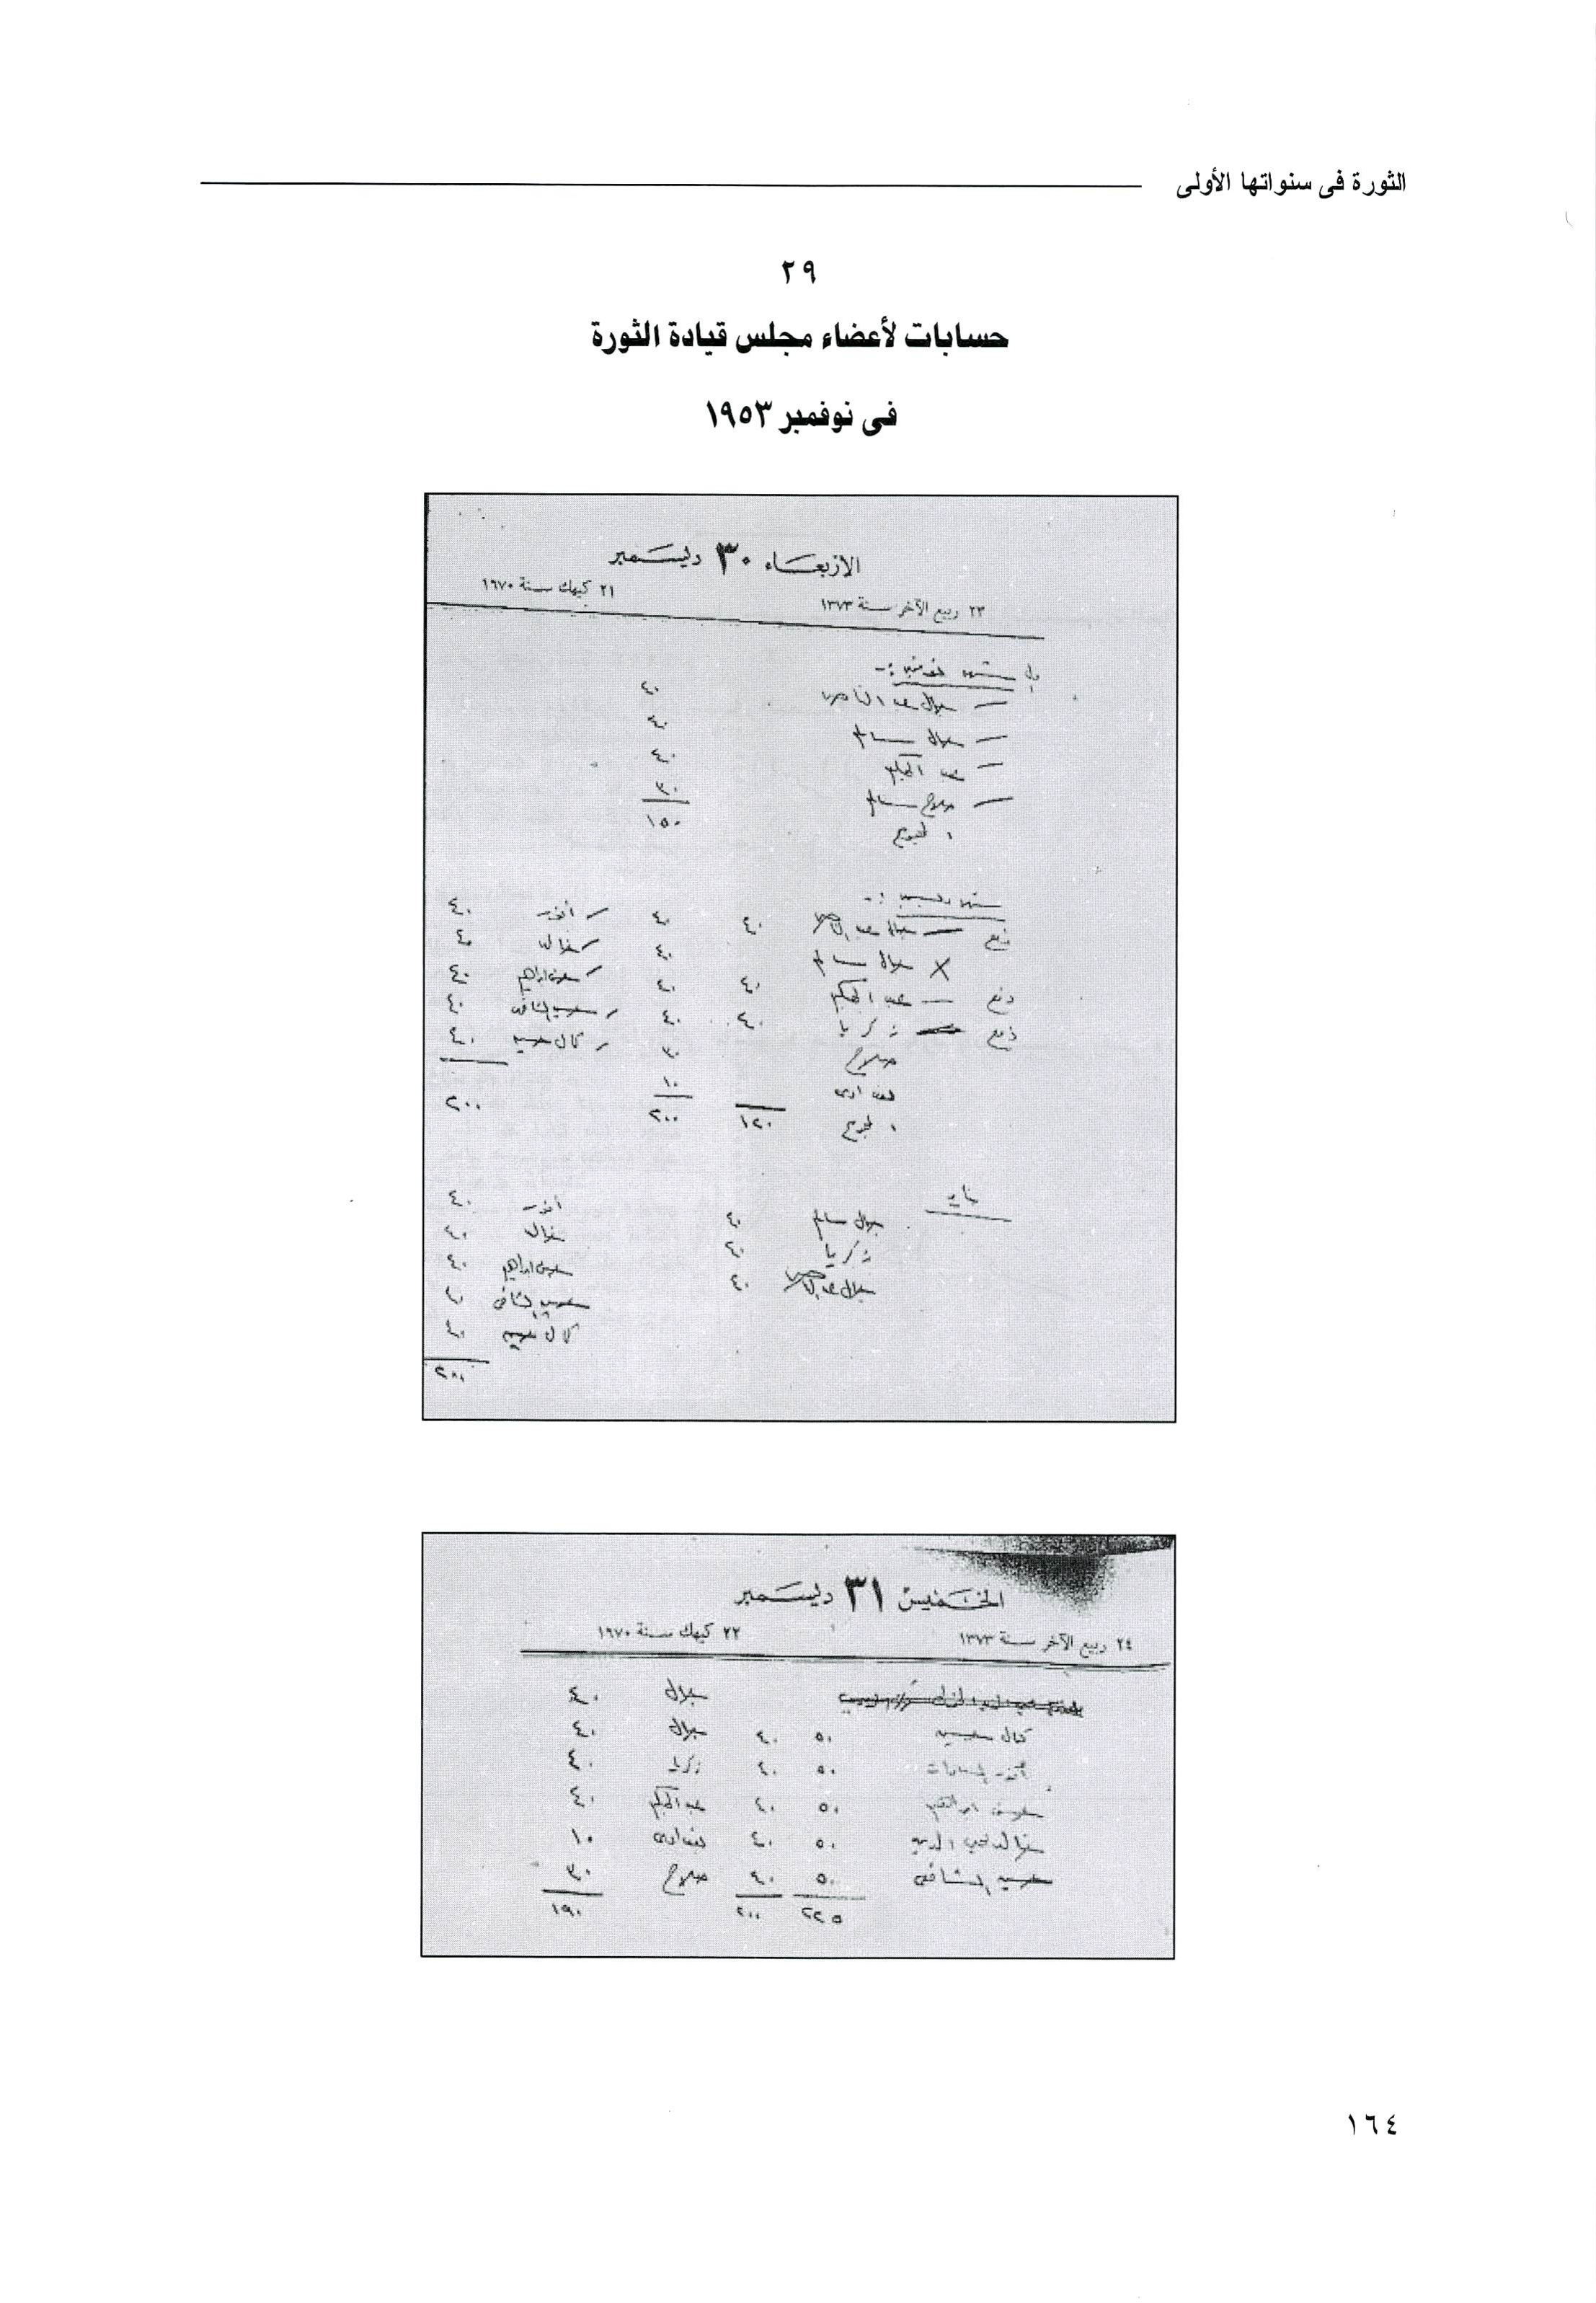 الثورة فى سنواتها الأولى
٢٩
حسابات لأعضاء مجلس قيادة الثورة
فى نوفمبر ١٩٥٣
الاربعاء ٣٠ ديسمبر
٢٣ ربيع الآخر سنة ١٣٧٣ ٢١ كيهك سنة ١٩٧٠
شهر نوفمبر :-
— جمال عبد الناصر ٤٠
— جمال سالم ٤٠
— عبد الحكيم ٤٠
— صلاح سالم ٣٠
المجموع ١٥٠
شهر ديسمبر :-
دفع — جمال عبد الناصر ٤٠ ٤٠ أنور ٤٠
× جمال سالم ٤٠ خالد ٤٠
دفع — عبد الحكيم ٤٠ ٤٠ حسن ابراهيم ٤٠
دفع — زكريا ٤٠ ٤٠ حسين الشافعى ٤٠
صلاح ٣٠ كمال حسين ٤٠
بغدادى ١٠
المجموع ١٢٠ ٢٠٠ ٢٠٠
يناير
أنور ٤٠
جمال سالم ٤٠ خالد ٤٠
زكريا ٤٠ حسن ابراهيم ٤٠
جمال عبد الناصر ٤٠ حسين الشافعى ٤٠
كمال حسين ٤٠
٢٠٠
الخميس ٣١ ديسمبر
٢٤ ربيع الآخر سنة ١٣٧٣ ٢٢ كيهك سنة ١٩٧٠
جمال ٤٠
كمال حسين ٥٠ ٤٠ جمال ٤٠
أنور السادات ٥٠ ٤٠ زكريا ٤٠
حسن ابراهيم ٥٠ ٤٠ عبد الحكيم ٤٠
خالد محى الدين ٥٠ ٤٠ بغدادى ١٠
حسين الشافعى ٥٠ ٤٠ صلاح ٣٠
٢٢٥ ٢٠٠ ١٩٠
١٦٤